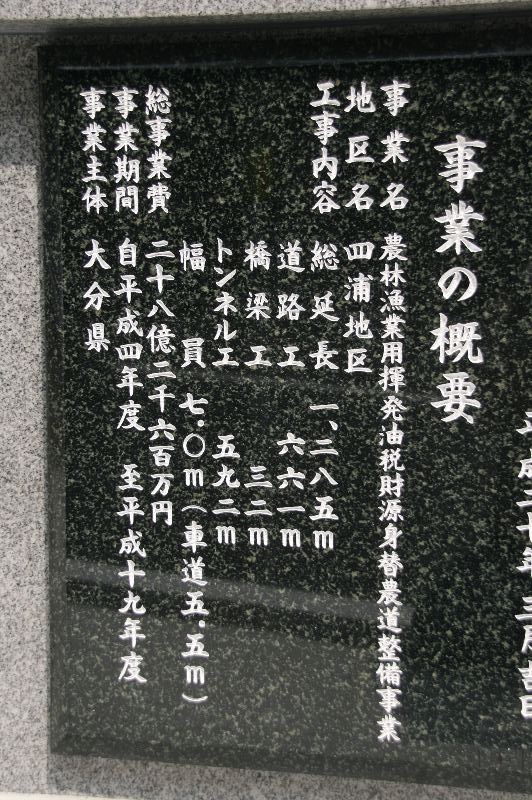 事業の概要
事業名 農林漁業用揮発油税財源身替農道整備事業
地区名 四浦地区
工事内容 総延長 一、二八五m
道路工 六六一m
橋梁工 三二m
トンネル工 五九二m
幅員 七.〇m(車道五.五m)
総事業費 二十八億二千六百万円
事業期間 自平成四年度 至平成十九年度
事業主体 大分県